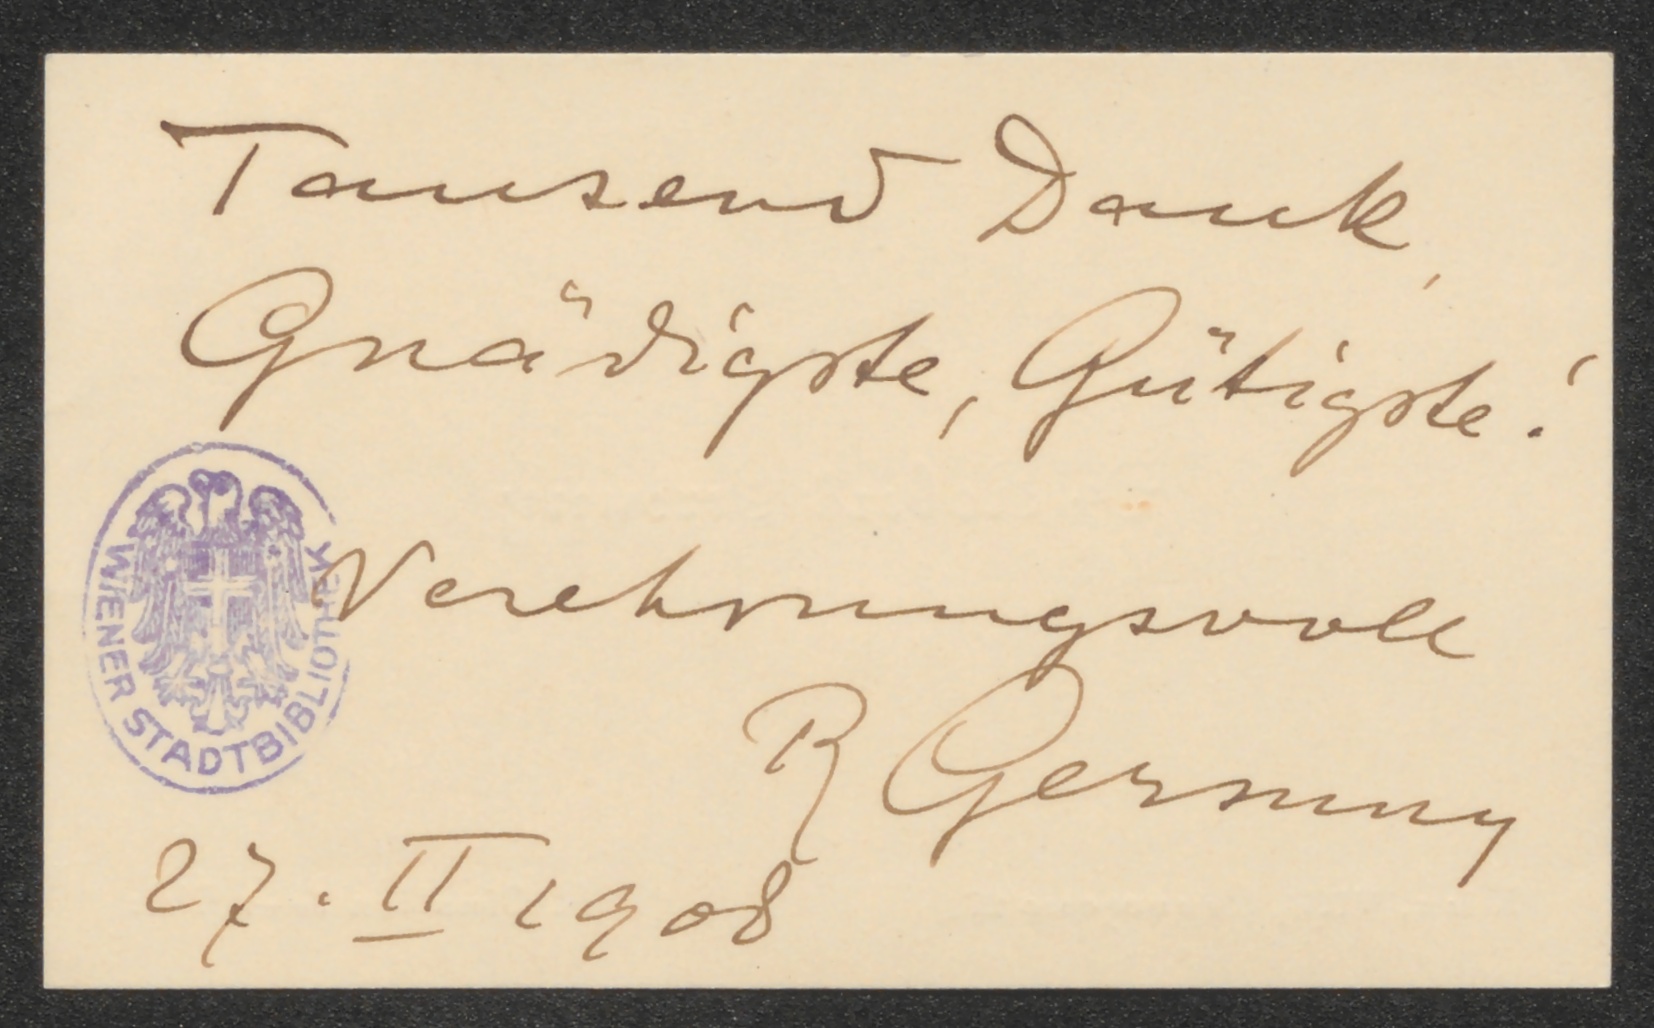 Tausend Dank,
Gnädigste, Gütigste!
WIENER STADTBIBLIOTHEK
Verehrungsvoll
R Gersuny
27. II 1908